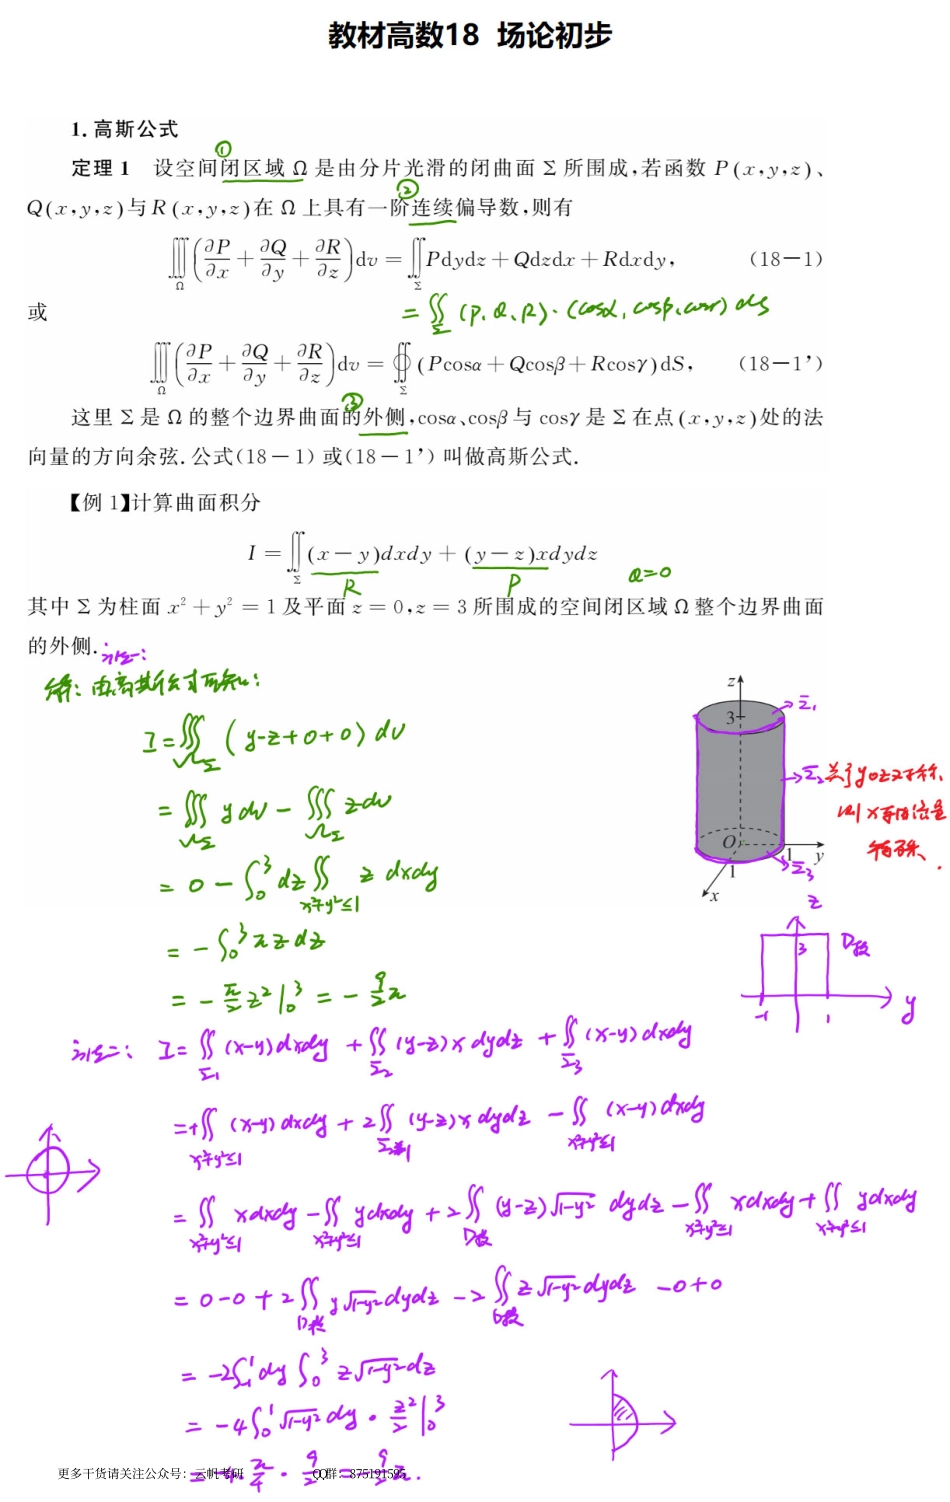 教材高数18 场论初步
1.高斯公式
①
定理 1 设空间闭区域 Ω 是由分片光滑的闭曲面 Σ 所围成,若函数 P(x,y,z)、
②
Q(x,y,z)与R(x,y,z)在 Ω 上具有一阶连续偏导数,则有
∭_Ω(∂P/∂x+∂Q/∂y+∂R/∂z)dv=∬_Σ Pdydz+Qdzdx+Rdxdy, (18-1)
或
=∬_Σ (P,Q,R)·(cosα,cosβ,cosγ)ds
∭_Ω(∂P/∂x+∂Q/∂y+∂R/∂z)dv=∯_Σ(Pcosα+Qcosβ+Rcosγ)dS, (18-1’)
③
这里 Σ 是 Ω 的整个边界曲面的外侧,cosα、cosβ 与 cosγ 是 Σ 在点(x,y,z)处的法
向量的方向余弦.公式(18-1)或(18-1’)叫做高斯公式.
【例 1】计算曲面积分
I=∬_Σ(x-y)dxdy+(y-z)xdydz
R P Q=0
其中 Σ 为柱面 x²+y²=1 及平面 z=0,z=3 所围成的空间闭区域 Ω 整个边界曲面
的外侧. 法一:
解:由高斯公式可知:
I=∭_Ω (y-z+0+0)dv
=∭_Ω ydv-∭_Ω zdv
=0-∫₀³dz∬_{x²+y²≤1} z dxdy
=-∫₀³πzdz
=-π/2 z²|₀³=-9/2π
z 3 O 1 1 y x
Σ₁
Σ₂
Σ₃
关于yoz对称,
则x
z
3 D投
-1 1 y
法二: I=∬_{Σ₁}(x-y)dxdy+∬_{Σ₂}(y-z)xdydz+∬_{Σ₃}(x-y)dxdy
=+∬_{x²+y²≤1}(x-y)dxdy+2∬(y-z)xdydz-∬_{x²+y²≤1}(x-y)dxdy
=∬_{x²+y²≤1}xdxdy-∬_{x²+y²≤1}ydxdy+2∬_{D投}(y-z)√(1-y²)dydz-∬_{x²+y²≤1}xdxdy+∬_{x²+y²≤1}ydxdy
=0-0+2∬_{D投}y√(1-y²)dydz-2∬_{D投}z√(1-y²)dydz-0+0
=-2∫₋₁¹dy∫₀³z√(1-y²)dz
=-4∫₀¹√(1-y²)dy·z²/2|₀³
=-4·π/4·9/2=-9/2π.
更多干货请关注公众号：云帆考研 QQ群：875191595